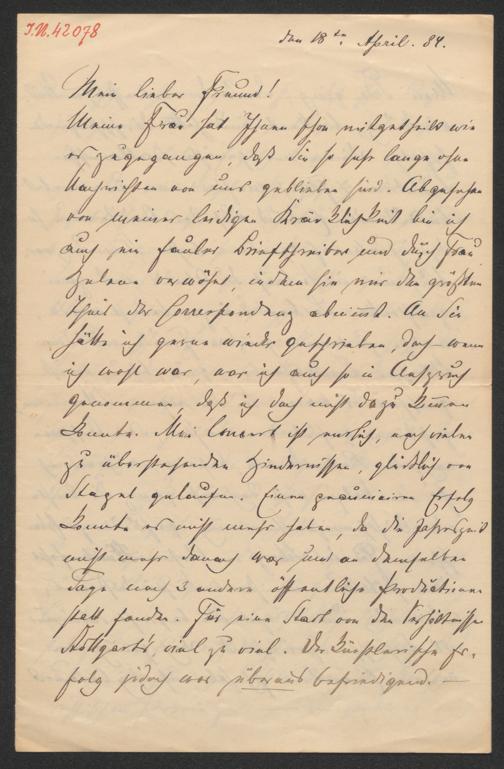 J.N. 42078
den 18ten April. 84.
Mein lieber Freund!
Meine Frau hat Ihnen schon mitgetheilt wie
es zugegangen, daß Sie so sehr lange ohne
Nachrichten von uns geblieben sind. Abgesehen
von meiner leidigen Kränklichkeit bin ich
auch ein fauler Briefschreiber und durch Frau
Helene verwöhnt, indem sie mir den größten
Theil der Correspondenz abnimmt. An Sie
hätte ich gerne wieder geschrieben, doch wenn
ich wohl war, war ich auch so in Anspruch
genommen, daß ich doch nicht dazu kommen
konnte. Mein Concert ist endlich, nach vielen
zu überstehenden Hindernissen, glücklich von
Stapel gelaufen. Einen pecuniairen Erfolg
konnte es nicht mehr haben, da die Jahreszeit
nicht mehr danach war und an demselben
Tage noch 3 andere öffentliche Productionen
statt fanden. Für eine Stadt von den Verhältnissen
Stuttgart's, viel zu viel. Der künstlerische Er-
folg jedoch war überaus befriedigend. —